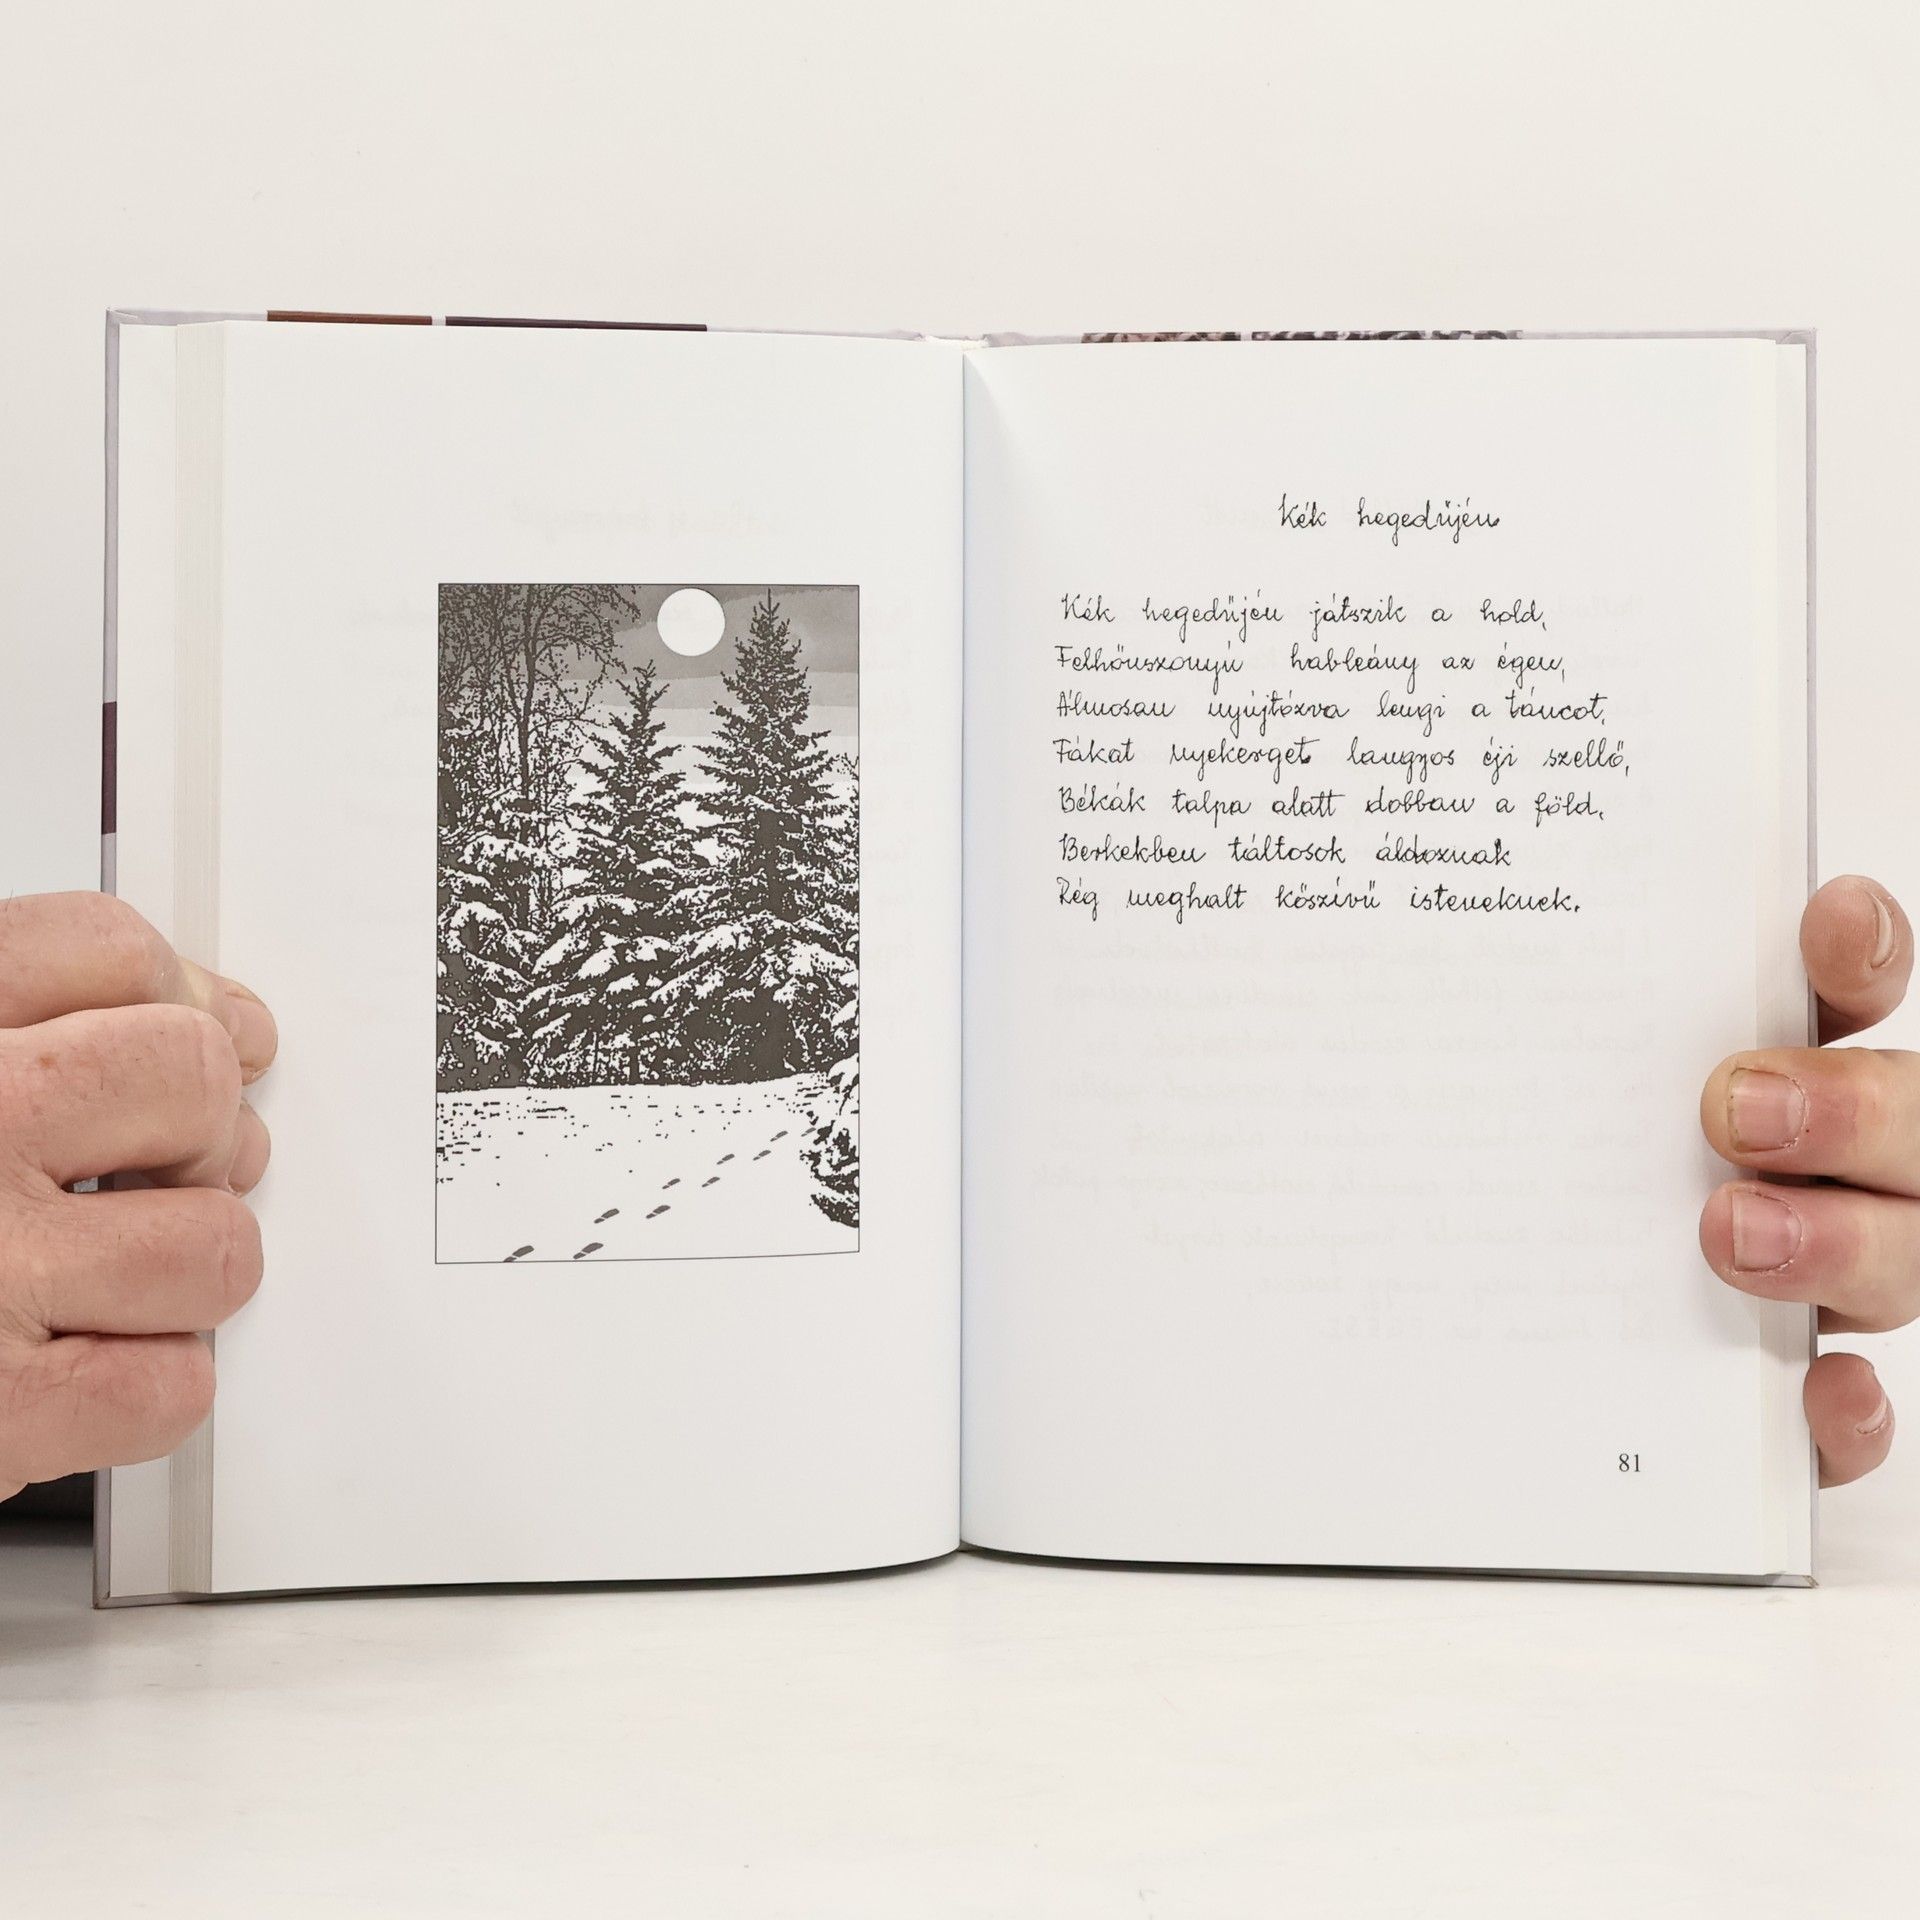 Kék hegedűjén
Kék hegedűjén játszik a hold,
Felhőuszonyú hableány az égen,
Álmosan nyújtózva lengi a táncot,
Fákat nyekerget langyos éji szellő,
Békák talpa alatt dobban a föld.
Berkekben táltosok áldoznak
Rég meghalt kőszívű isteneknek.
81